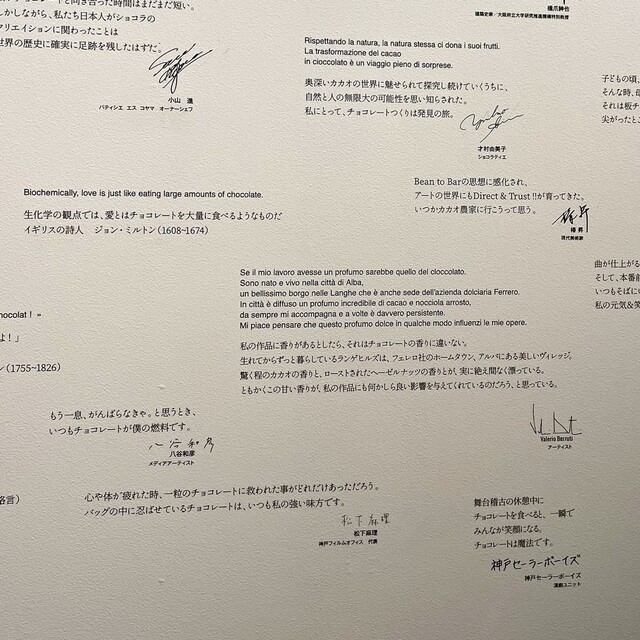 ョコレートと向き合った時間はまだまだ短い。
しかしながら、私たち日本人がショコラの
クリエイションに関わったことは
世界の歴史に確実に足跡を残したはずだ。
小山 進
パティシエ エス コヤマ オーナーシェフ
橋爪紳也
建築史家／大阪府立大学研究推進機構特別教授
Rispettando la natura, la natura stessa ci dona i suoi frutti.
La trasformazione del cacao
in cioccolato è un viaggio pieno di sorprese.
奥深いカカオの世界に魅せられて探究し続けていくうちに、
自然と人の無限大の可能性を思い知らされた。
私にとって、チョコレートつくりは発見の旅。
才村由美子
ショコラティエ
子どもの頃、
そんな時、
それは板チ
尖がったとこ
Biochemically, love is just like eating large amounts of chocolate.
生化学の観点では、愛とはチョコレートを大量に食べるようなものだ
イギリスの詩人 ジョン・ミルトン（1608~1674）
Bean to Barの思想に感化され、
アートの世界にもDirect & Trust !!が育ってきた。
いつかカカオ農家に行こうって思う。
椿 昇
椿 昇
現代美術家
Se il mio lavoro avesse un profumo sarebbe quello del cioccolato.
Sono nato e vivo nella città di Alba,
un bellissimo borgo nelle Langhe che è anche sede dell'azienda dolciaria Ferrero.
In città è diffuso un profumo incredibile di cacao e nocciola arrosto,
da sempre mi accompagna e a volte è davvero persistente.
Mi piace pensare che questo profumo dolce in qualche modo influenzi le mie opere.
私の作品に香りがあるとしたら、それはチョコレートの香りに違いない。
生れてからずっと暮らしているランゲヒルズは、フェレロ社のホームタウン、アルバにある美しいヴィレッジ。
驚く程のカカオの香りと、ローストされたヘーゼルナッツの香りとが、実に絶え間なく漂っている。
ともかくこの甘い香りが、私の作品にも何かしら良い影響を与えてくれているのだろう、と思っている。
Valerio Berruti
アーティスト
曲が仕上がる
そして、本番前
いつもそばに
私の元気&
hocolat ! »
よ！」
ン（1755~1826）
もう一息、がんばらなきゃ。と思うとき、
いつもチョコレートが僕の燃料です。
八谷和彦
八谷和彦
メディアアーティスト
格言）
心や体が疲れた時、一粒のチョコレートに救われた事がどれだけあっただろう。
バッグの中に忍ばせているチョコレートは、いつも私の強い味方です。
松下麻理
松下麻理
神戸フィルムオフィス 代表
舞台稽古の休憩中に
チョコレートを食べると、一瞬で
みんなが笑顔になる。
チョコレートは魔法です。
神戸セーラーボーイズ
神戸セーラーボーイズ
演劇ユニット